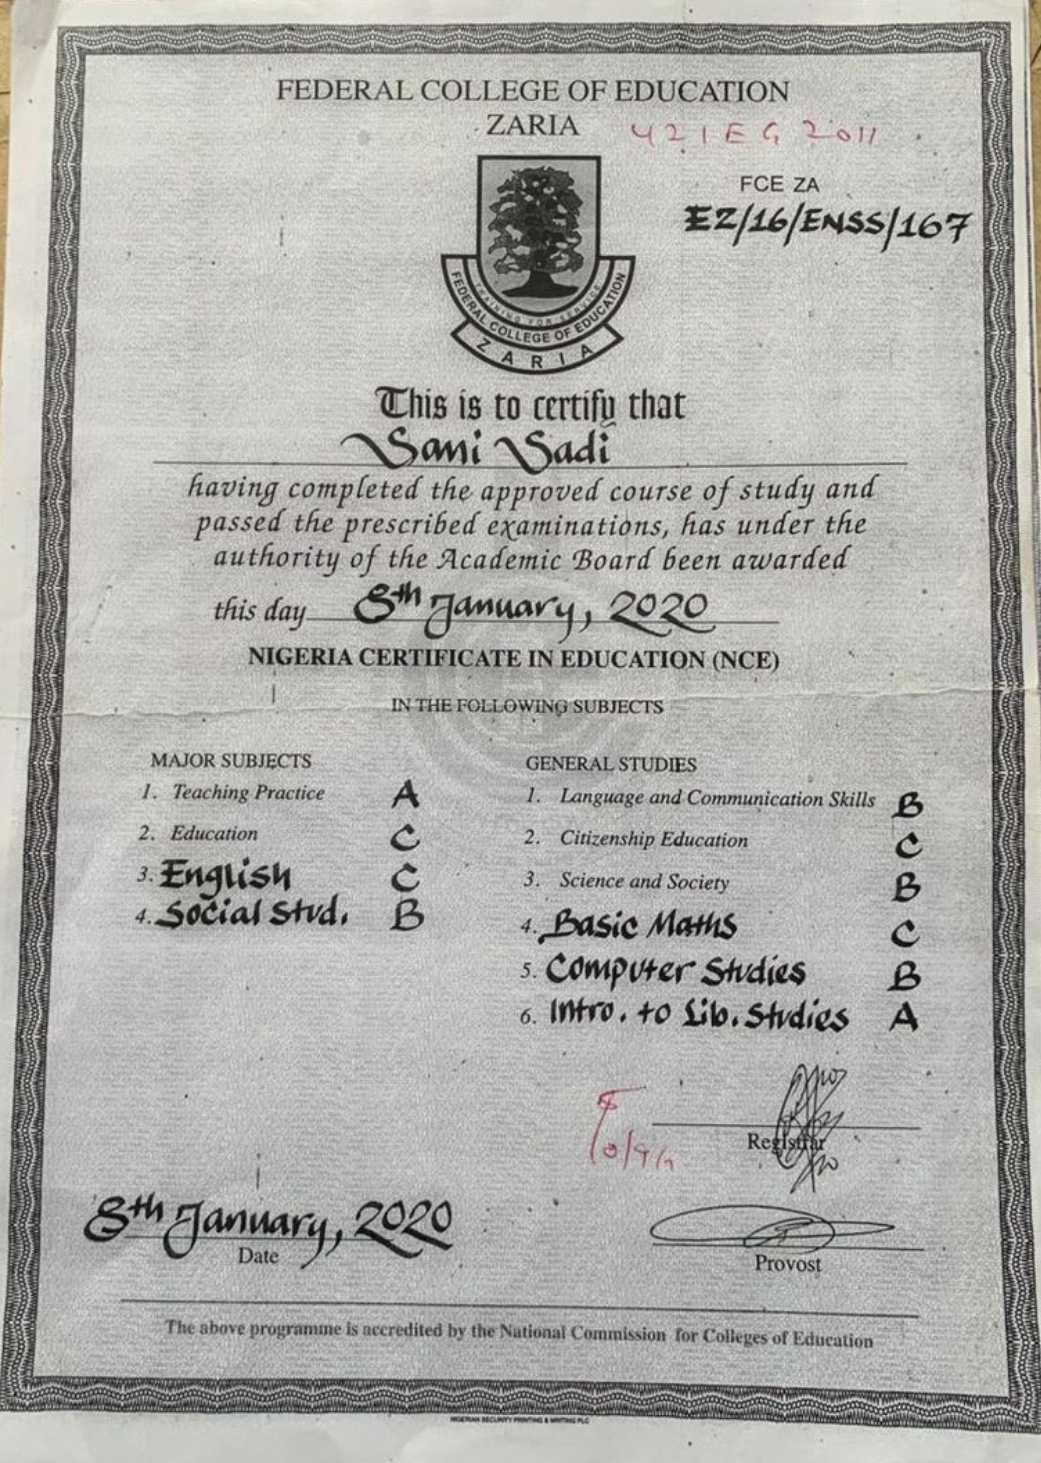 FEDERAL COLLEGE OF EDUCATION
ZARIA
421EG2011
FCE ZA
EZ/16/ENSS/167
TRAINING FOR SERVICE
FEDERAL COLLEGE OF EDUCATION
ZARIA
This is to certify that
Sani Sadi
having completed the approved course of study and
passed the prescribed examinations, has under the
authority of the Academic Board been awarded
this day 8th January, 2020
NIGERIA CERTIFICATE IN EDUCATION (NCE)
IN THE FOLLOWING SUBJECTS
MAJOR SUBJECTS
1. Teaching Practice A
2. Education C
3. English C
4. Social Stud. B
GENERAL STUDIES
1. Language and Communication Skills B
2. Citizenship Education C
3. Science and Society B
4. Basic Maths C
5. Computer Studies B
6. Intro. to Lib. Studies A
Registrar
8th January, 2020
Date
Provost
The above programme is accredited by the National Commission for Colleges of Education
NIGERIAN SECURITY PRINTING & MINTING PLC